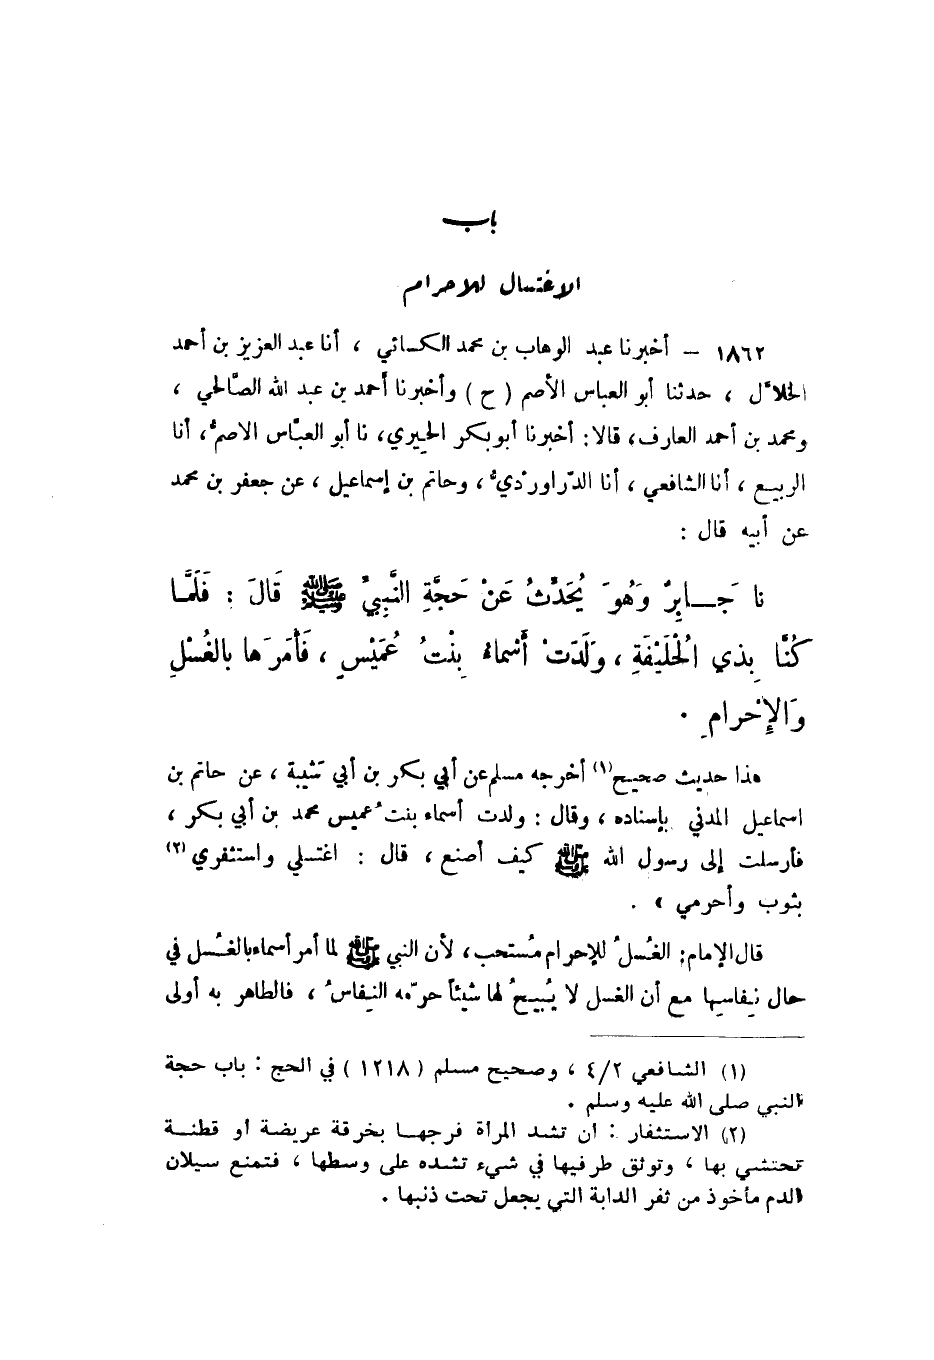 باب
الاغتسال للاحرام
١٨٦٢ – أخبرنا عبد الوهاب بن محمد الكسائي ، أنا عبد العزيز بن أحمد
الخلاَّل ، حدثنا أبو العباس الأصم ( ح ) وأخبرنا أحمد بن عبد الله الصَّالحي ،
ومحمد بن أحمد العارف، قالا: أخبرنا أبو بكر الحِيري، نا أبو العبَّاس الاصمُّ، أنا
الربيع ، أنا الشافعي ، أنا الدَّراورْديُّ ، وحاتم بن إسماعيل ، عن جعفر بن محمد
عن أبيه قال :
نا جَــابِرٌ وَهُوَ يُحَدِّثُ عَنْ حَجَّةِ النَّبِيِّ ﷺ قَالَ : فَلَمَّا
كُنَّا بِذي الحُلَيْفَةِ ، وَلَدَتْ أَسْماءُ بِنْتُ عُمَيْسٍ ، فَأَمَرَها بالغُسْلِ
وَالإِحْرامِ .
هذا حديث صحيح(١) أخرجه مسلم عن أبي بكر بن أبي شيبة ، عن حاتم بن
اسماعيل المدني بإسناده ، وقال : ولدت أسماء بنتُ عميس محمد بن أبي بكر ،
فأرسلت إلى رسول الله ﷺ كيف أصنع ، قال : اغتسلي واستثفري (٢)
بثوب وأحرمي » .
قال الإمام: الغُسلُ للإحرام مُستحب، لأن النبي ﷺ لما أمر أسماء بالغُسل في
حال نِفاسِها مع أن الغسل لا يُبيحُ لها شيئاً حرَّمه النفاسُ ، فالطاهر به أولى
(١) الشافعي ٤/٢ ، وصحيح مسلم ( ١٢١٨ ) في الحج : باب حجة
النبي صلى الله عليه وسلم .
(٢) الاستثفار : ان تشد المرأة فرجها بخرقة عريضة أو قطنة
تحتشي بها ، وتوثق طرفيها في شيء تشده على وسطها ، فتمنع سيلان
الدم مأخوذ من ثفر الدابة التي يجعل تحت ذنبها .